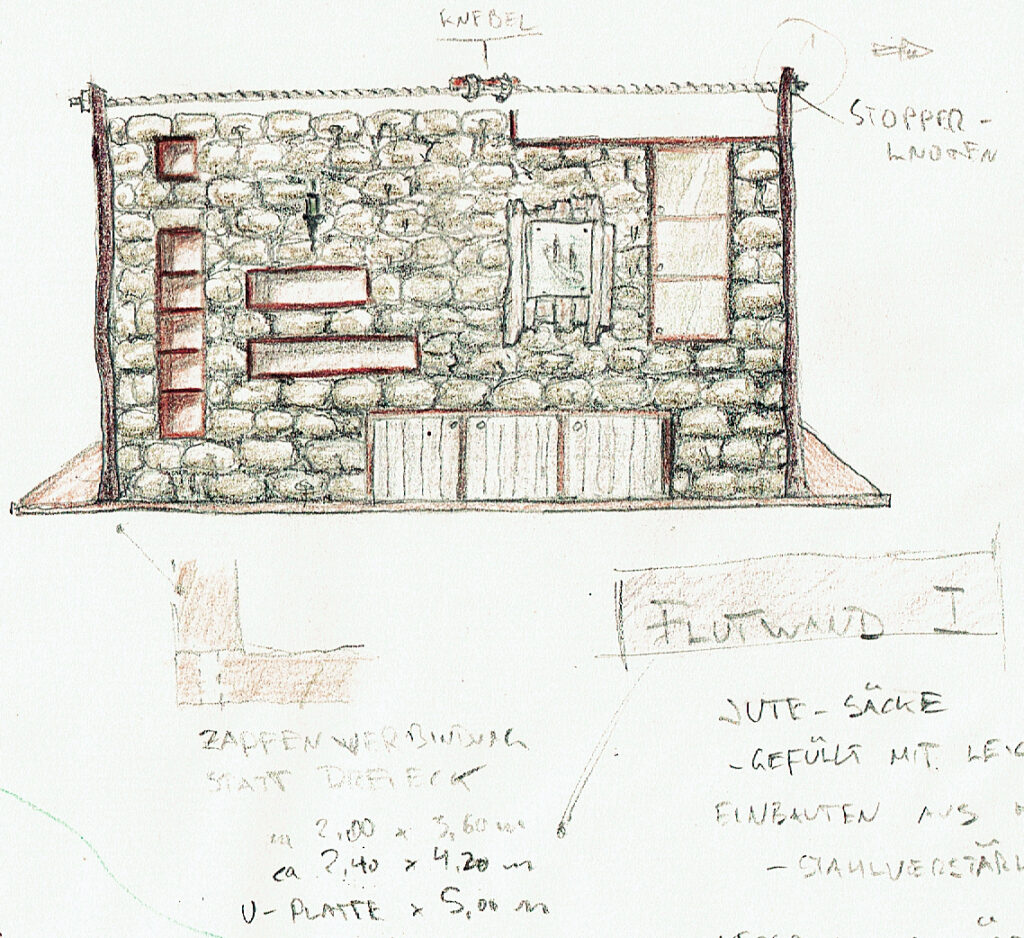 KNEBEL
STOPPER-
KNOTEN
FLUTWAND I
JUTE-SÄCKE
ZAPFENVERBINDUNG
- GEFÜLLT MIT
STATT DREIECK
EINBAUTEN AUS
ca 2,00 x 3,60 m
ca 2,40 x 4,20 m
U-PLATTE x 5,00 m